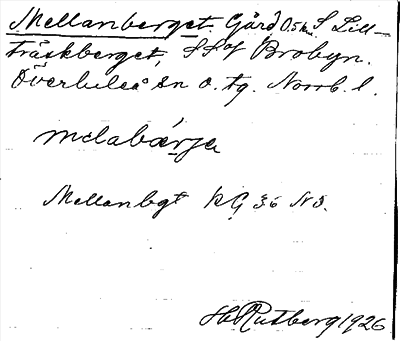 Mellanberget. Gård 0.5 km S Lill-
träskberget, SSO Brobyn.
Överluleå sn o. tg. Norrb. l.
melabárja
Mellanbgt KG 36 NO.
H Rutberg 1926